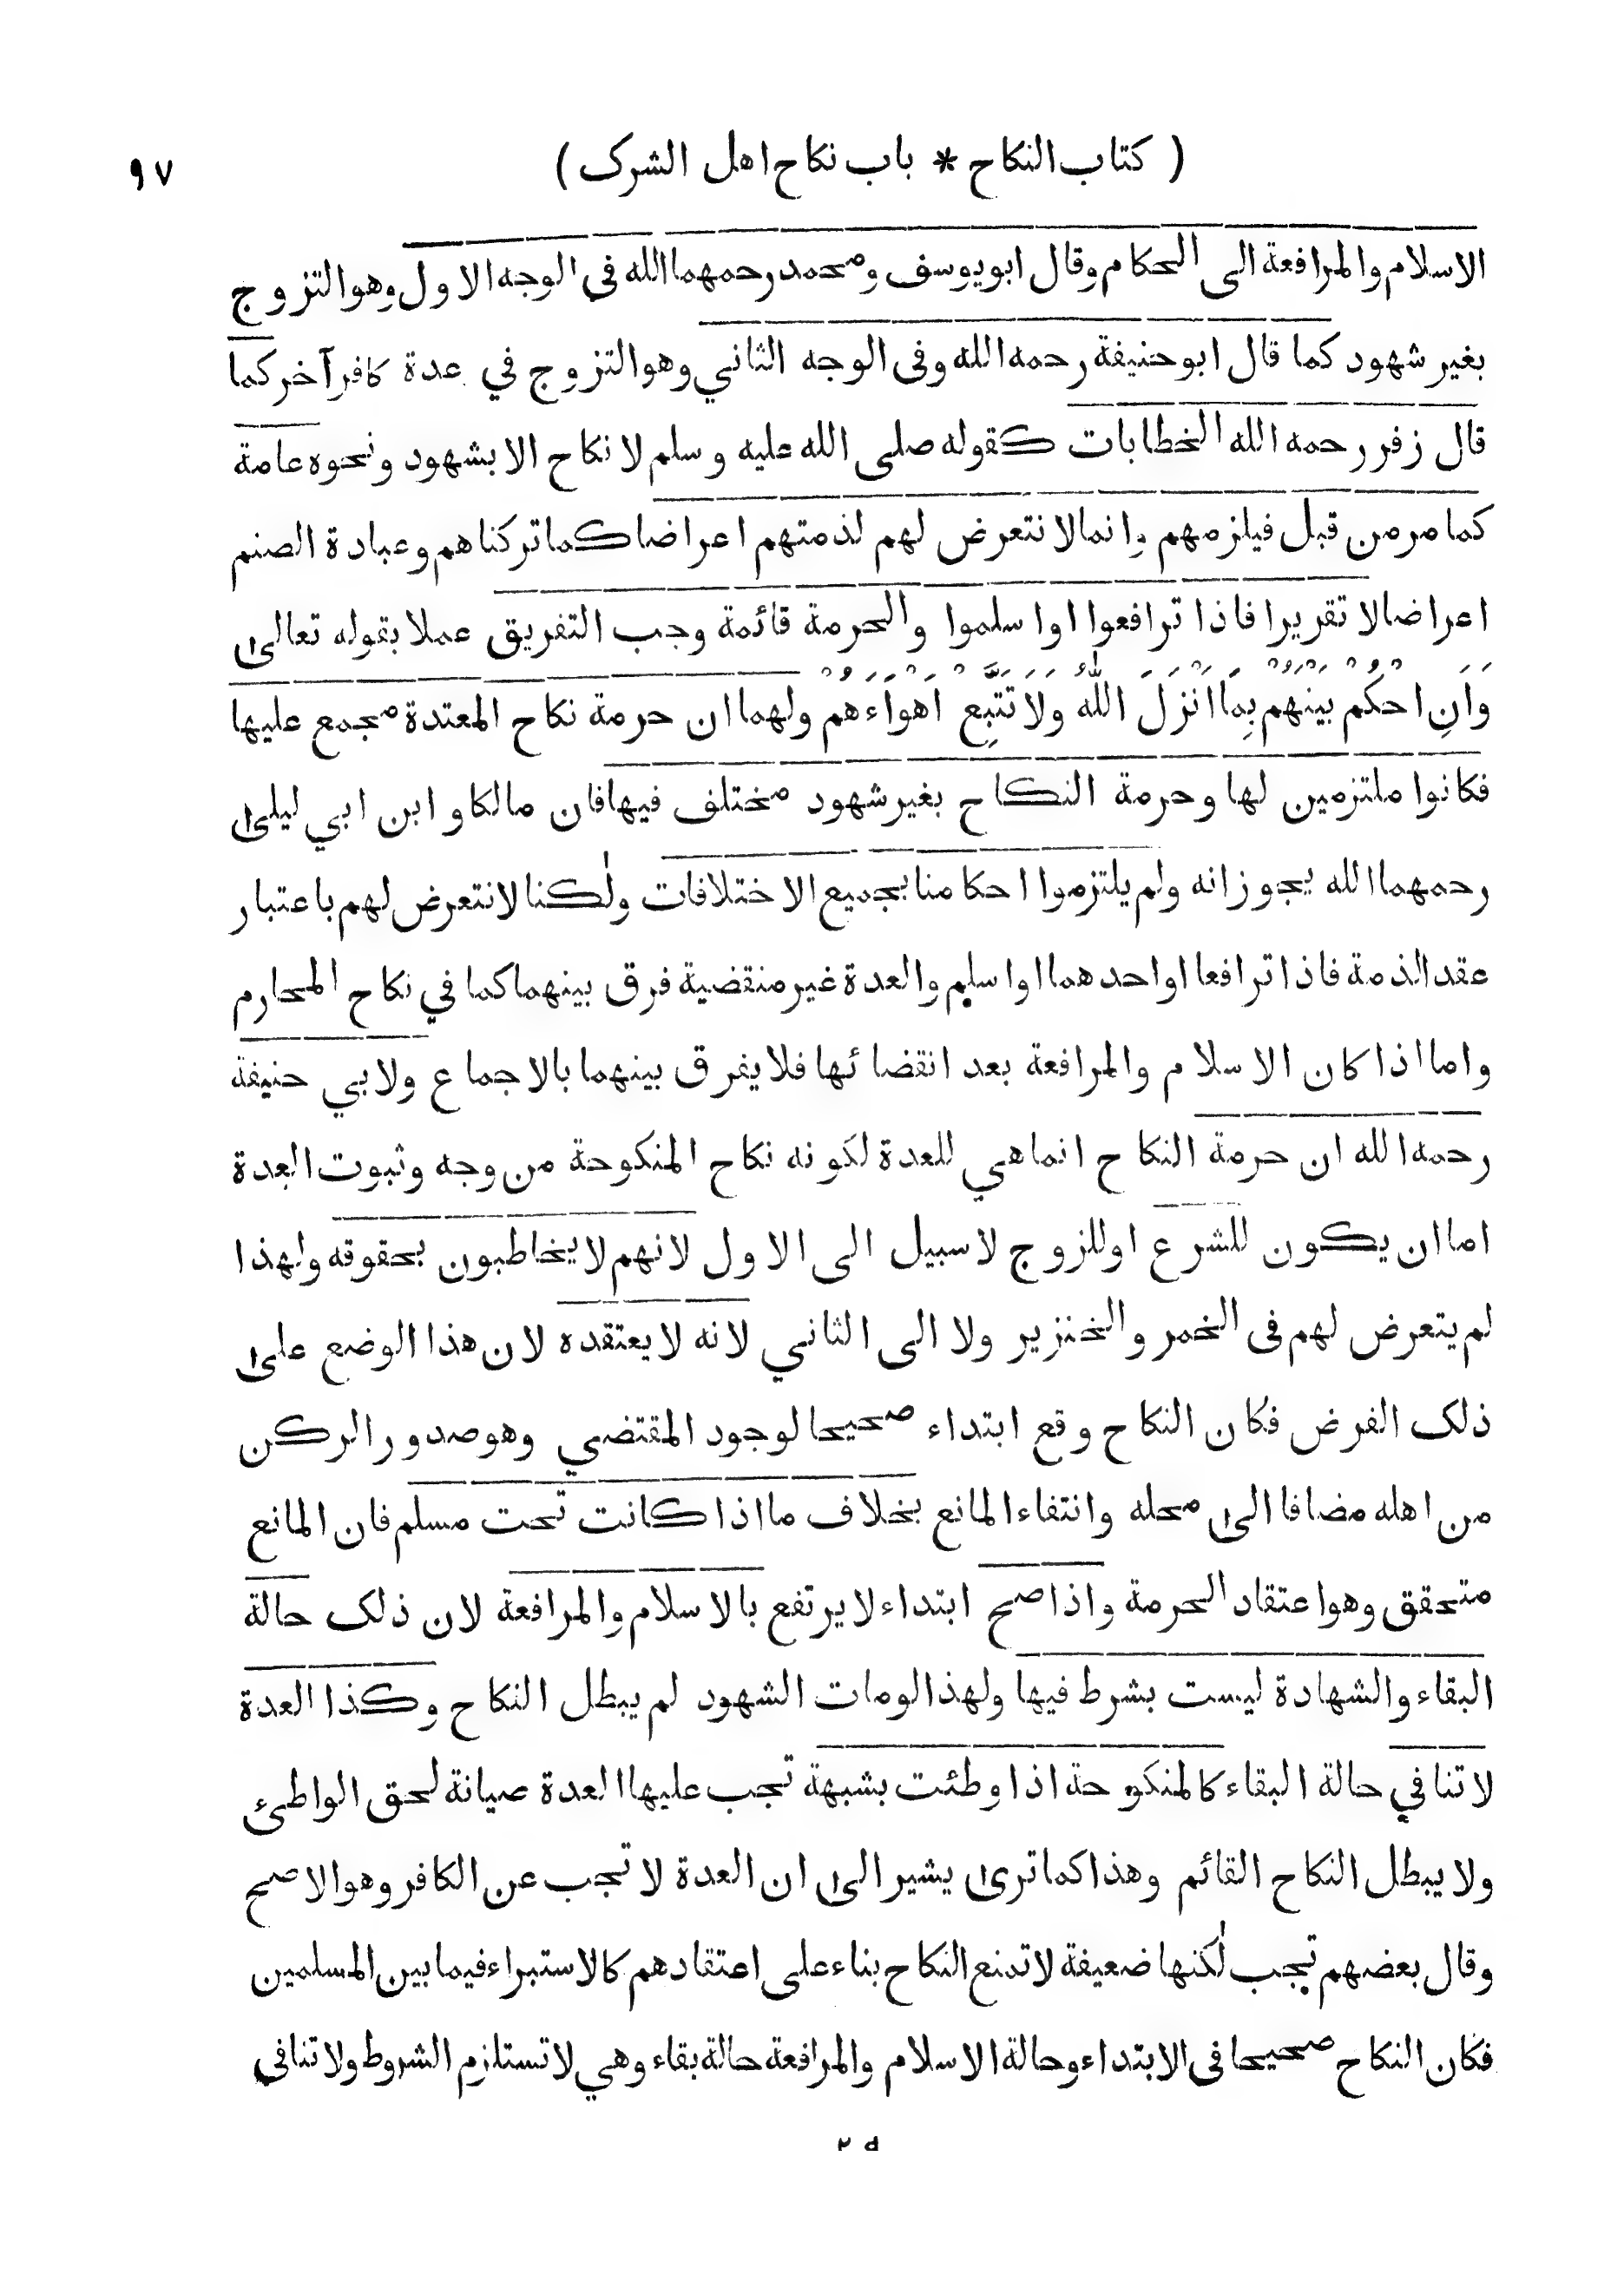 ( كتاب النكاح * باب نكاح اهل الشرک )
٩٧
الاسلام والمرافعة الى الحكام وقال ابويوسف ومحمد رحمهما الله في الوجه الاول وهو التزوج
بغير شهود كما قال ابوحنيفة رحمه الله وفى الوجه الثاني وهو التزوج في عدة كافر آخر كما
قال زفر رحمه الله الخطابات كقوله صلى الله عليه وسلم لا نكاح الا بشهود ونحوه عامة
كما مر من قبل فيلزمهم وانما لا نتعرض لهم لذمتهم اعراضا كما تركناهم وعبادة الصنم
اعراضا لا تقريرا فاذا ترافعوا او اسلموا والحرمة قائمة وجب التفريق عملا بقوله تعالى
وَاَنِ احْكُمْ بَيْنَهُمْ بِمَا اَنْزَلَ اللّٰهُ وَلَا تَتَّبِعْ اَهْوَاءَهُمْ ولهما ان حرمة نكاح المعتدة مجمع عليها
فكانوا ملتزمين لها وحرمة النكاح بغير شهود مختلف فيها فان مالكا و ابن ابي ليلى
رحمهما الله يجوزانه ولم يلتزموا احكامنا بجميع الاختلافات ولٰكنا لا نتعرض لهم باعتبار
عقد الذمة فاذا ترافعا او احدهما او اسلم والعدة غير منقضية فرق بينهما كما في نكاح المحارم
واما اذا كان الاسلام والمرافعة بعد انقضائها فلا يفرق بينهما بالاجماع ولابي حنيفة
رحمه الله ان حرمة النكاح انما هي للعدة لكونه نكاح المنكوحة من وجه وثبوت العدة
اما ان يكون للشرع او للزوج لا سبيل الى الاول لانهم لا يخاطبون بحقوقه ولهذا
لم يتعرض لهم فى الخمر والخنزير ولا الى الثاني لانه لا يعتقده لان هذا الوضع على
ذلک الفرض فكان النكاح وقع ابتداء صحيحا لوجود المقتضي وهو صدور الركن
من اهله مضافا الى محله وانتفاء المانع بخلاف ما اذا كانت تحت مسلم فان المانع
متحقق وهو اعتقاد الحرمة واذا صح ابتداء لا يرتفع بالاسلام والمرافعة لان ذلک حالة
البقاء والشهادة ليست بشرط فيها ولهذا لومات الشهود لم يبطل النكاح وكذا العدة
لا تنافي حالة البقاء كالمنكوحة اذا وطئت بشبهة تجب عليها العدة صيانة لحق الواطئ
ولا يبطل النكاح القائم وهذا كما ترى يشير الى ان العدة لا تجب عن الكافر وهو الاصح
وقال بعضهم تجب لٰكنها ضعيفة لا تمنع النكاح بناء على اعتقادهم كالاستبراء فيما بين المسلمين
فكان النكاح صحيحا فى الابتداء وحالة الاسلام والمرافعة حالة بقاء وهي لا تستلزم الشروط ولا تنافي